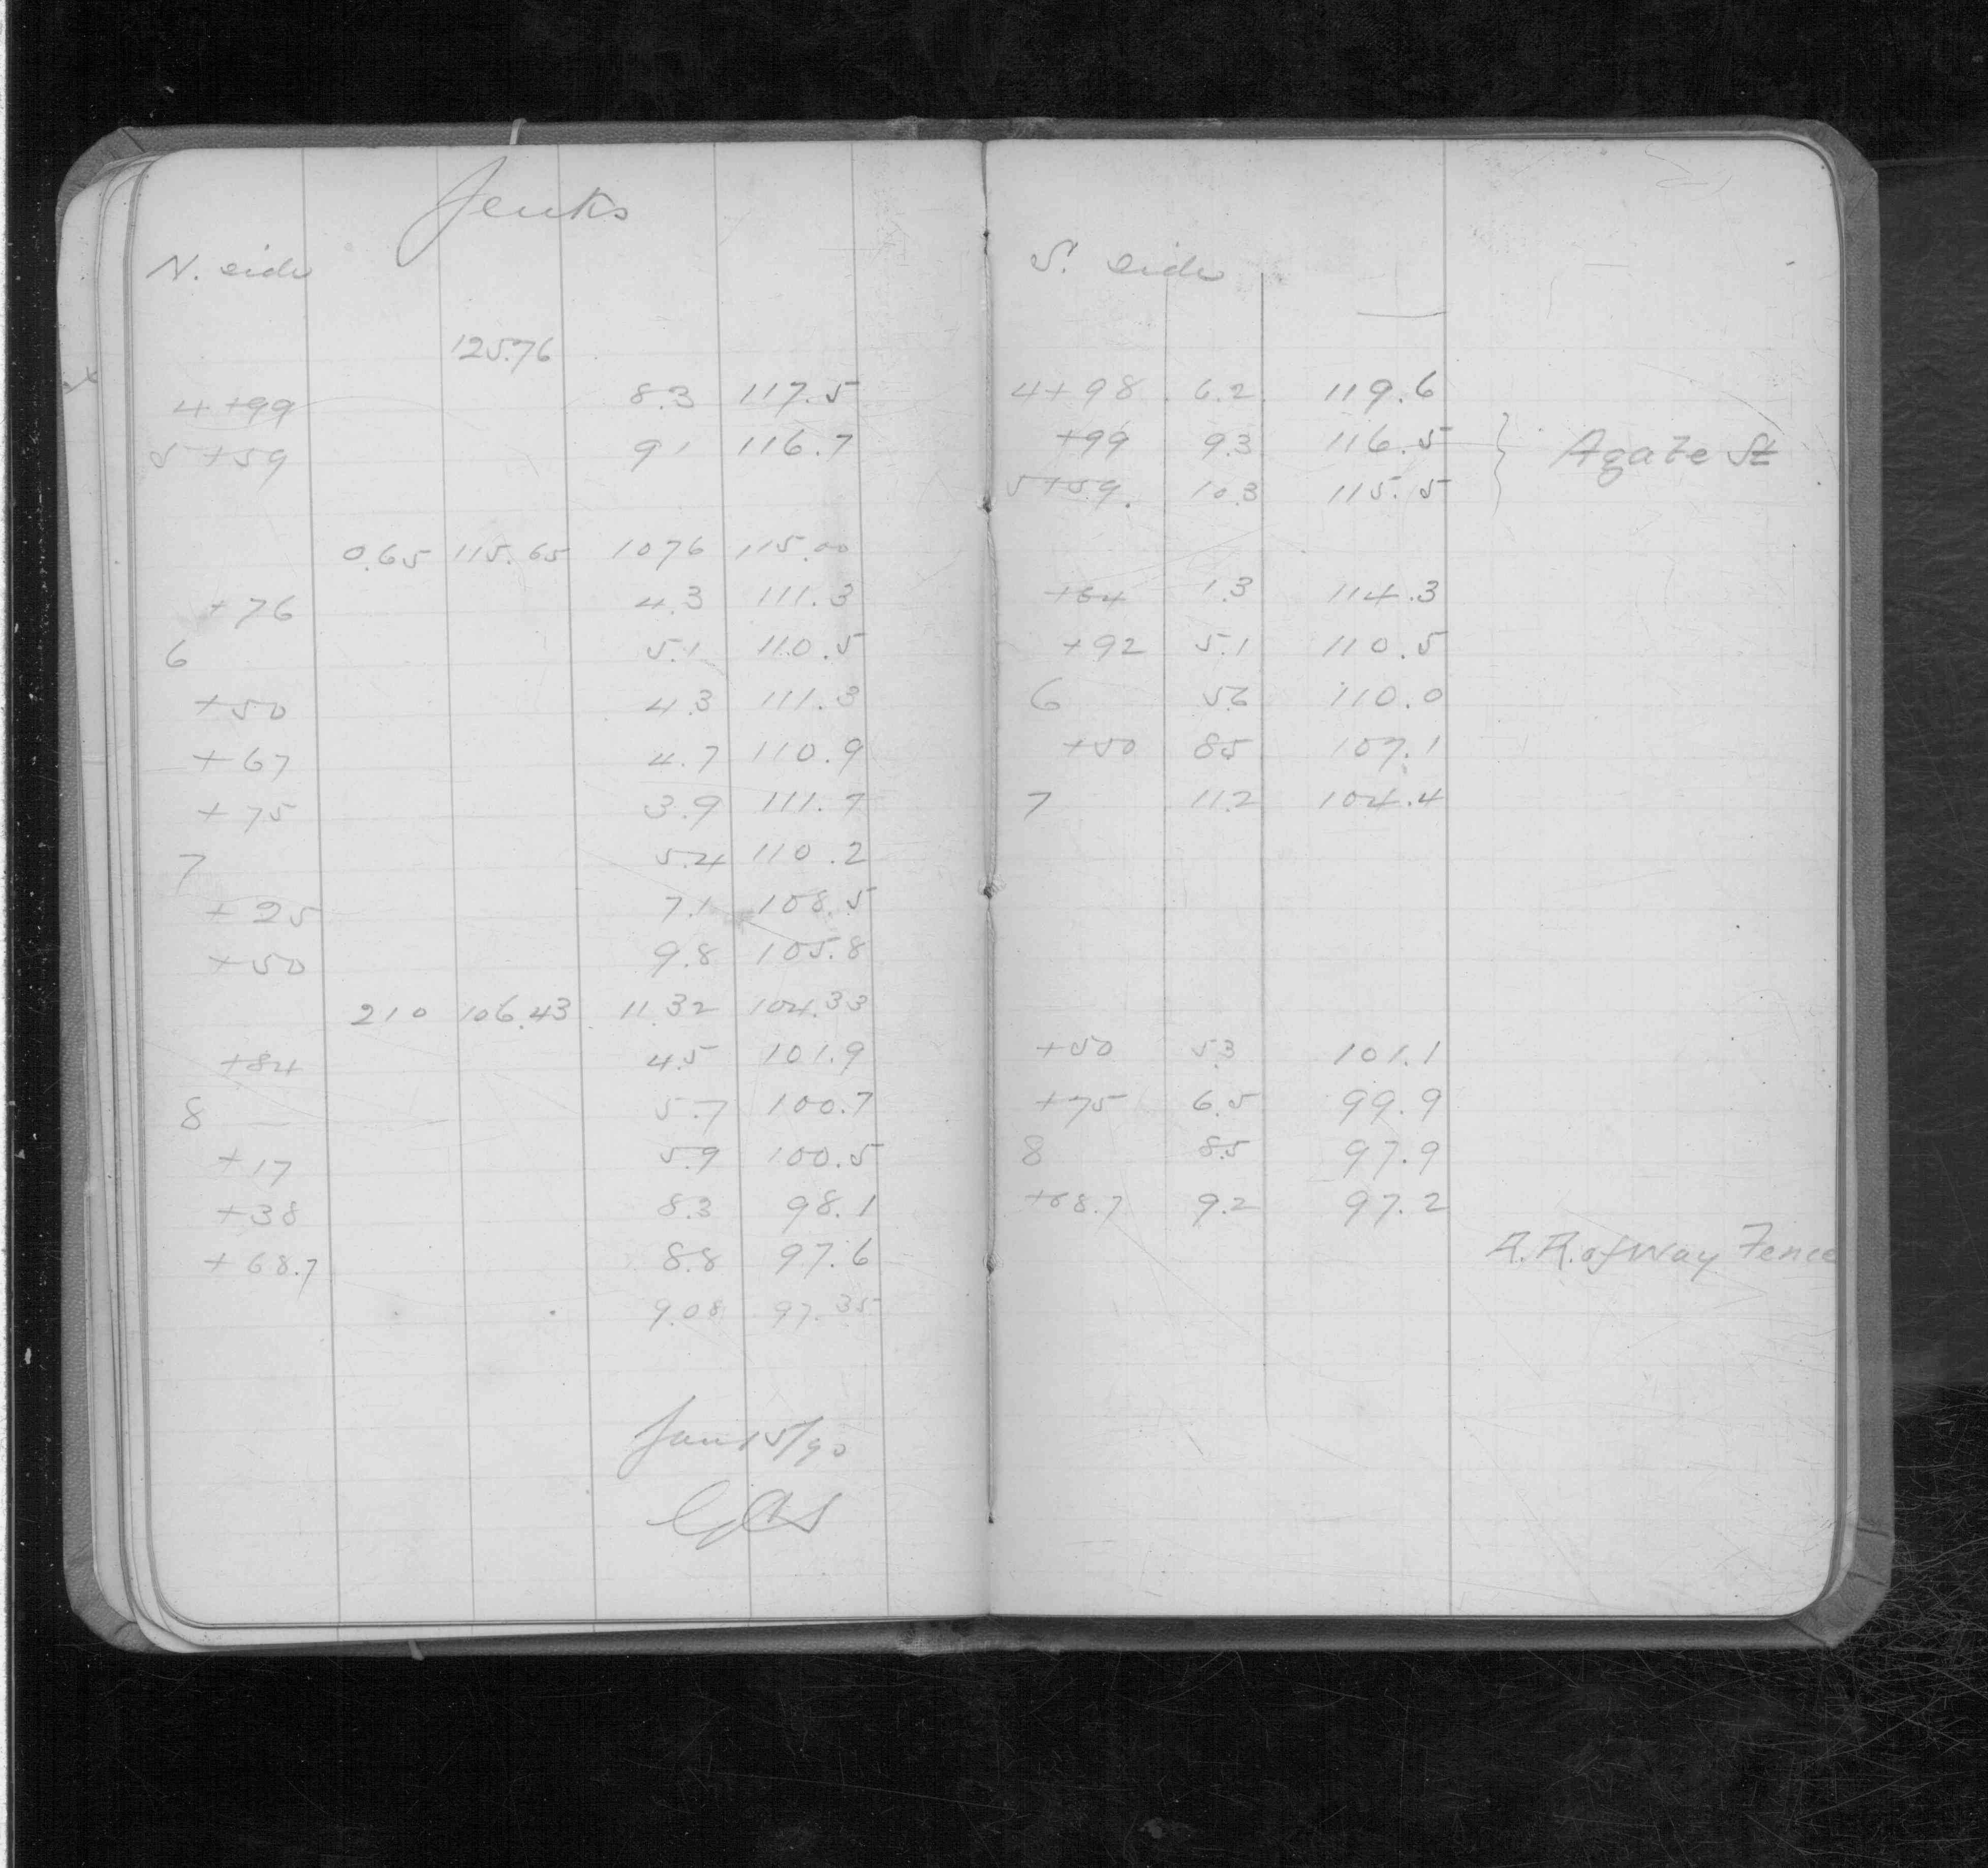 Jenks
N. side
125.76
4+99 8.3 117.5
5+59 9.1 116.7
0.65 115.65 10.76 115.00
+76 4.3 111.3
6 5.1 110.5
+50 4.3 111.3
+67 4.7 110.9
+75 3.9 111.7
7 5.4 110.2
+25 7.1 108.5
+50 9.8 105.8
2.10 106.43 11.32 104.33
+84 4.5 101.9
8 5.7 100.7
+17 5.9 100.5
+38 8.3 98.1
+68.7 8.8 97.6
9.08 97.35
Jan 15/90
S. side
4+98 6.2 119.6
+99 9.3 116.5
Agate St
5+59. 10.3 115.5
+64 1.3 114.3
+92 5.1 110.5
6 5.6 110.0
+50 8.5 107.1
7 11.2 104.4
+50 5.3 101.1
+75 6.5 99.9
8 8.5 97.9
+68.7 9.2 97.2
R.R. of Way Fence